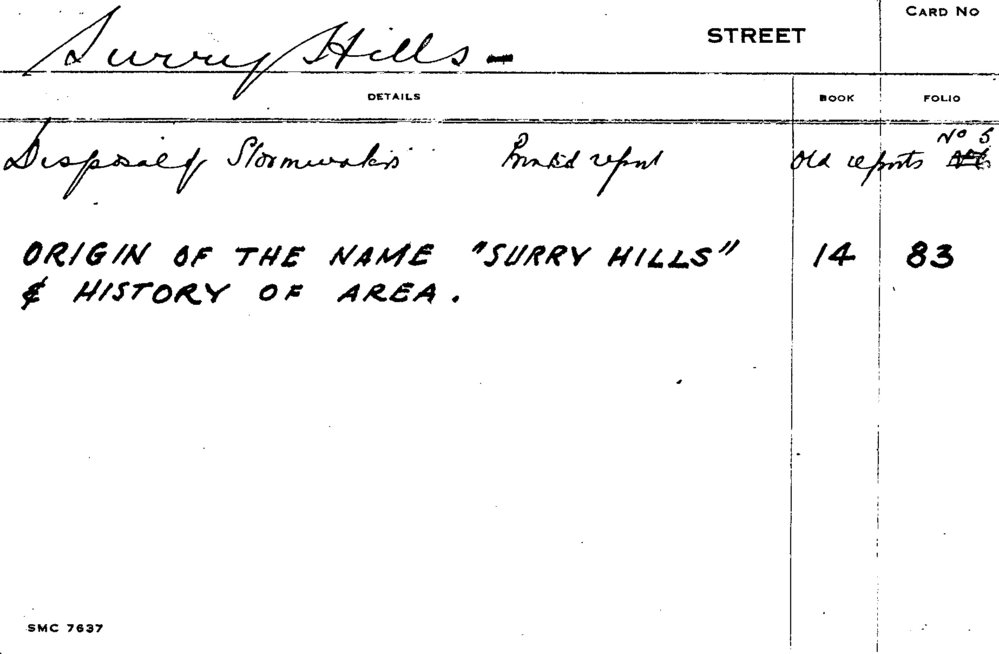 Surry Hills - STREET CARD NO
DETAILS BOOK FOLIO
Disposal of Stormwaters Printed report Old reports No 5
ORIGIN OF THE NAME "SURRY HILLS" 14 83
& HISTORY OF AREA.
SMC 7637